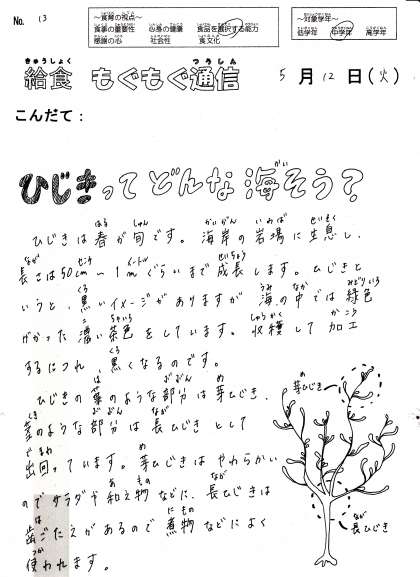 No. 13
～食育の視点～
食事の重要性 心身の健康 食品を選択する能力
感謝の心 社会性 食文化
～対象学年～
低学年 中学年 高学年
給食 もぐもぐ通信 5月12日(火)
こんだて：
ひじきってどんな海そう？
ひじきは春が旬です。海岸の岩場に生息し、
長さは50cm～1mぐらいまで成長します。ひじきと
いうと、黒いイメージがありますが海の中では緑色
がかった濃い茶色をしています。収穫して加工
するにつれ、黒くなるのです。
ひじきの葉のような部分は芽ひじき、
茎のような部分は長ひじきとして
出回っています。芽ひじきはやわらかい
のでサラダや和え物などに、長ひじきは
歯ごたえがあるので煮物などによく
使われます。
芽ひじき
長ひじき